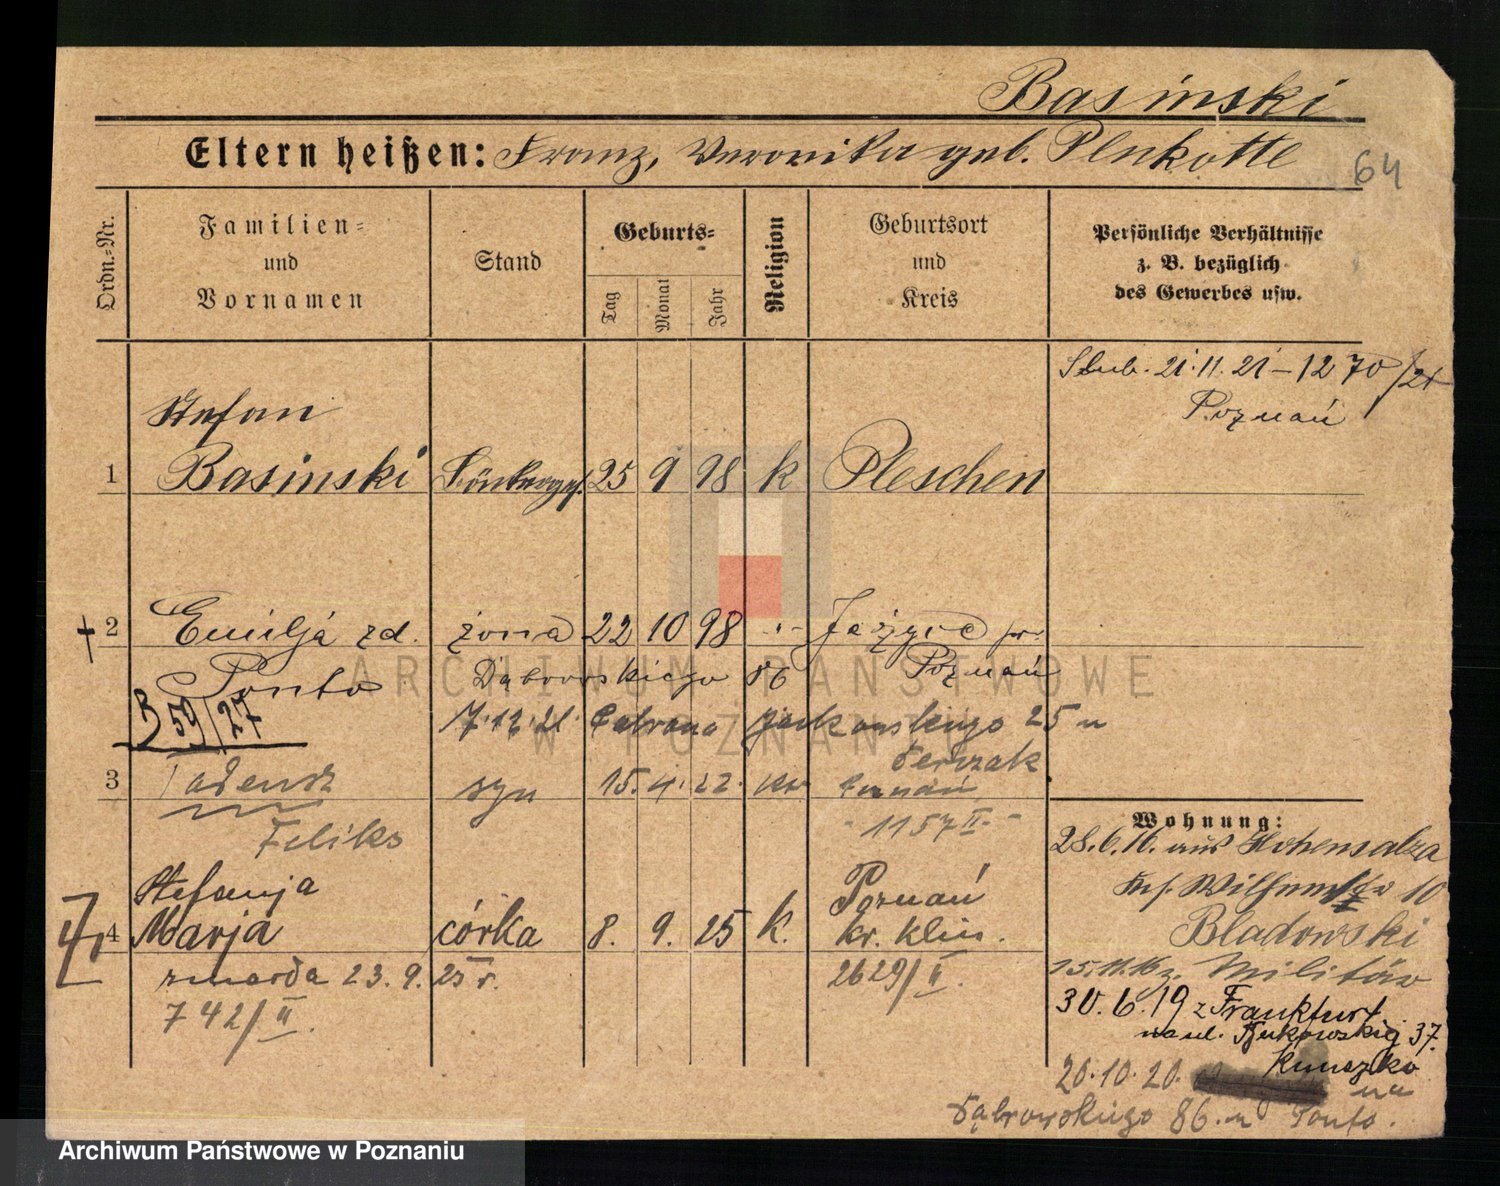 Basinski
Eltern heißen: Franz, Veronika geb. Plukotte
64
Ordn.-Nr.
Familien-
und
Vornamen
Stand
Geburts-
Tag
Monat
Jahr
Religion
Geburtsort
und
Kreis
Persönliche Verhältnisse
z. B. bezüglich
des Gewerbes usw.
Ślub. 21.11.21 – 1270/21
Poznań
Stefan
1 Basinski 25 9 98 k Pleschen
† 2 Emilja zd. żona 22 10 98 -"- Jeżyce
Ponto Dąbrowskiego 86 Poznań
B 59/27
7.12.21. 25
3 Tadeusz syn 15. 4. 22.
Feliks
1157 II.
Wohnung:
28.6.16. aus Hohensalza
10
Bladowski
15.11.16 z. Militär
30.6.19 z Frankfurt
na ul. Bukowskiej 37.
20.10.20. na
Dąbrowskiego 86. u Ponto.
Stefanja
4 Marja córka 8. 9. 25 k. Poznań
kr. klin.
zmarła 23.9.25 r.
2629/II.
742/II.
ARCHIWUM PAŃSTWOWE
W POZNANIU
Archiwum Państwowe w Poznaniu